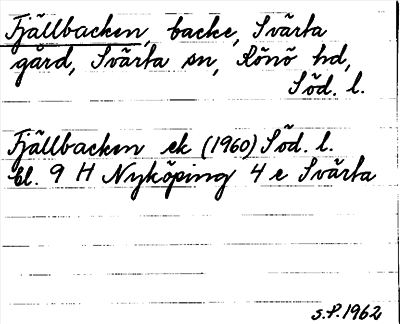 Fjällbacken, backe, Svärta
gård, Svärta sn, Rönö hd,
Söd. l.
Fjällbacken ek (1960) Söd. l.
bl. 9 H Nyköping 4 e Svärta
S.P. 1962